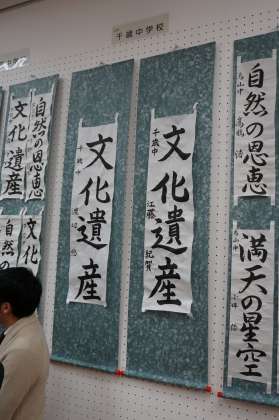 千歳中学校
自然の恩恵
烏山中
満天の星空
烏山中
文化遺産
千歳中
江藤 紀賀
文化遺産
千歳中
自然の恩恵
文化遺産
文化
自然の